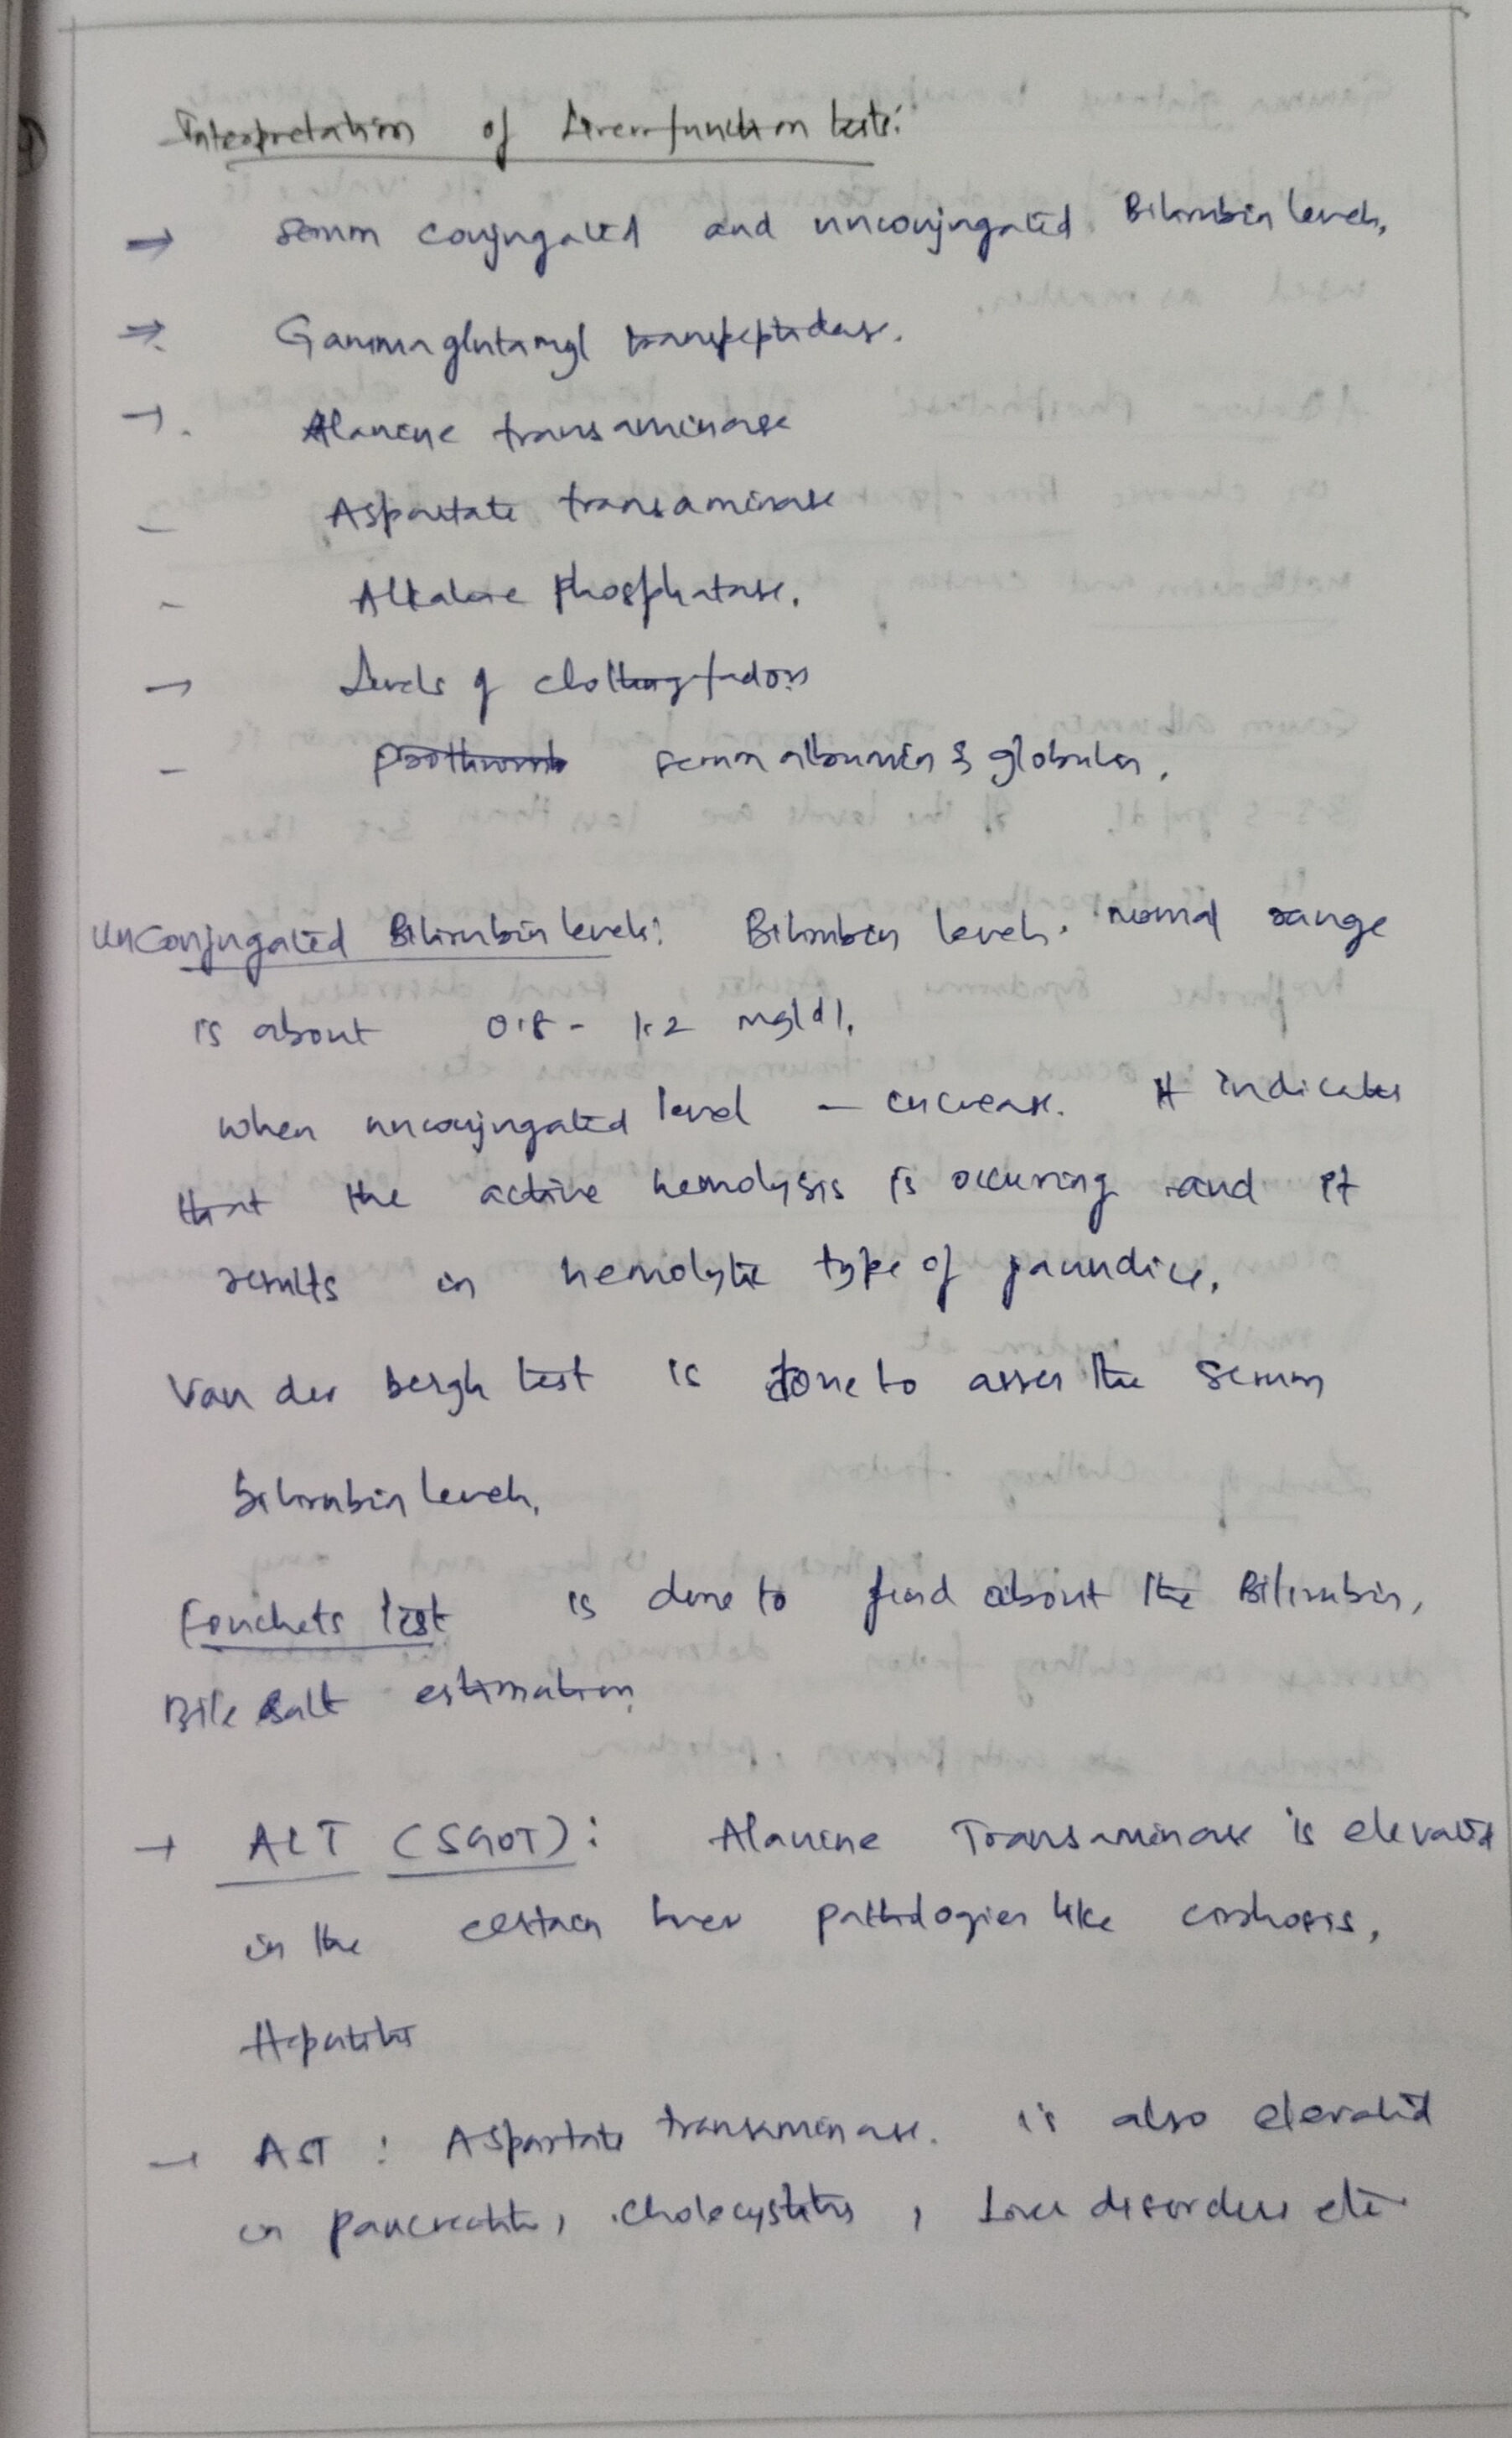 Interpretation of Liver function tests:
⇒ Serum conjugated and unconjugated Bilirubin levels.
⇒ Gamma glutamyl transpeptidase.
→. Alanine transaminase
- Aspartate transaminase
- Alkaline Phosphatase.
→ Levels of clotting factors
- serum albumin & globulin.
UnConjugated Bilirubin levels: Bilirubin levels. normal range
is about 0.8 - 1.2 mg/dl.
when unconjugated level - increase. It indicates
that the active hemolysis is occuring and it
results in hemolytic type of jaundice.
Van der bergh test is done to asses the serum
bilirubin levels.
Fouchets test is done to find about the Bilirubin,
Bile salt estimation.
→ ALT (SGOT): Alanine Transaminase is elevated
in the certain liver pathologies like cirrhosis,
Hepatitis
→ AST : Aspartate transaminase. is also elevated
in pancreatitis, cholecystitis, Liver disorders etc